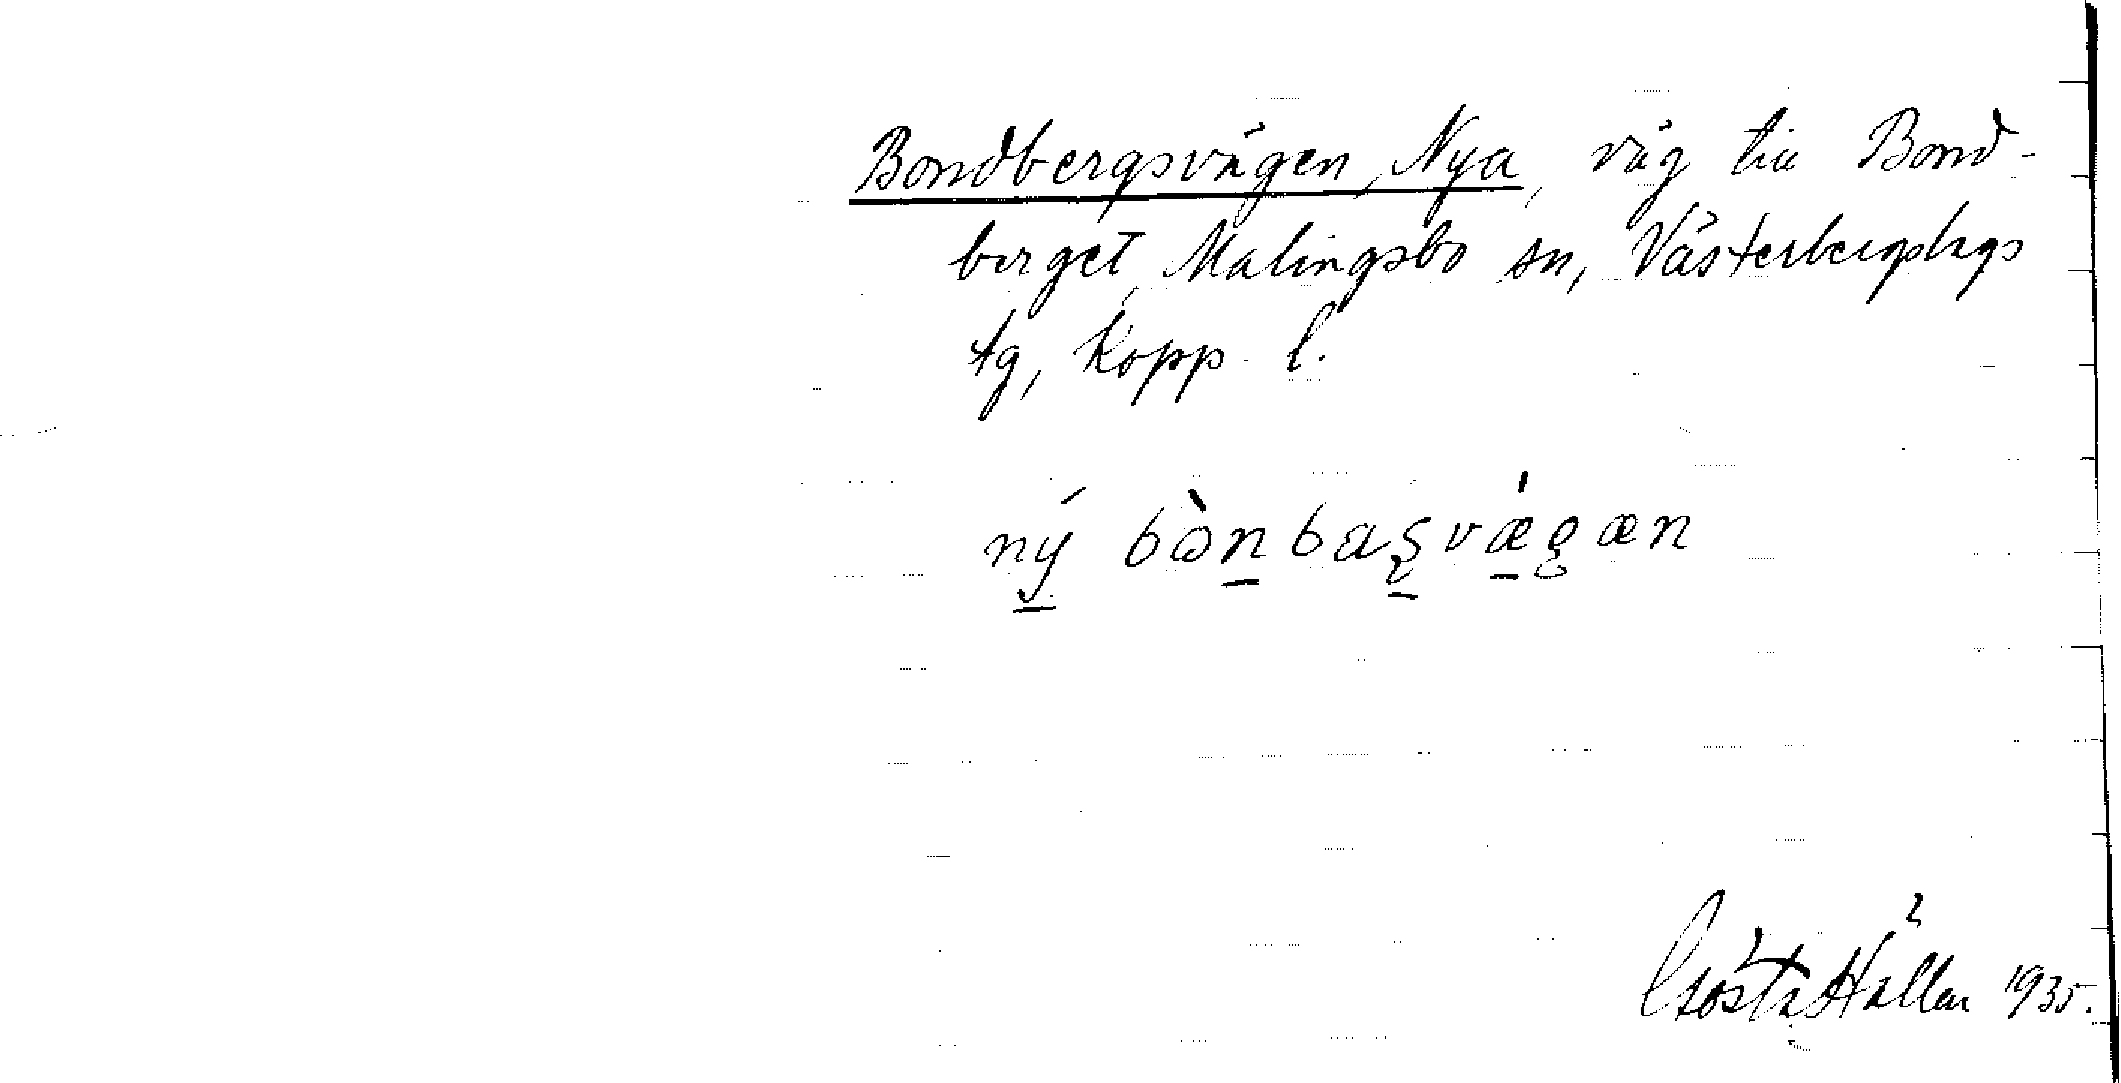 Bondbergsvägen, Nya, väg till Bond-
berget, Malingsbo sn, Västerbergslags
tg, Kopp. l.
ný bònbaʂvǽgæn
Gösta Hällan 1935.